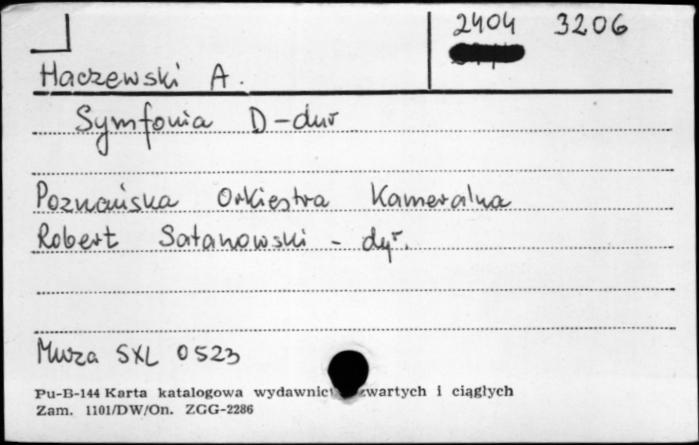 2404 3206
Haczewski A.
Symfonia D-dur
Poznańska Orkiestra Kameralna
Robert Satanowski - dyr.
Muza SXL 0523
Pu-B-144 Karta katalogowa wydawnic zwartych i ciągłych
Zam. 1101/DW/On. ZGG-2286